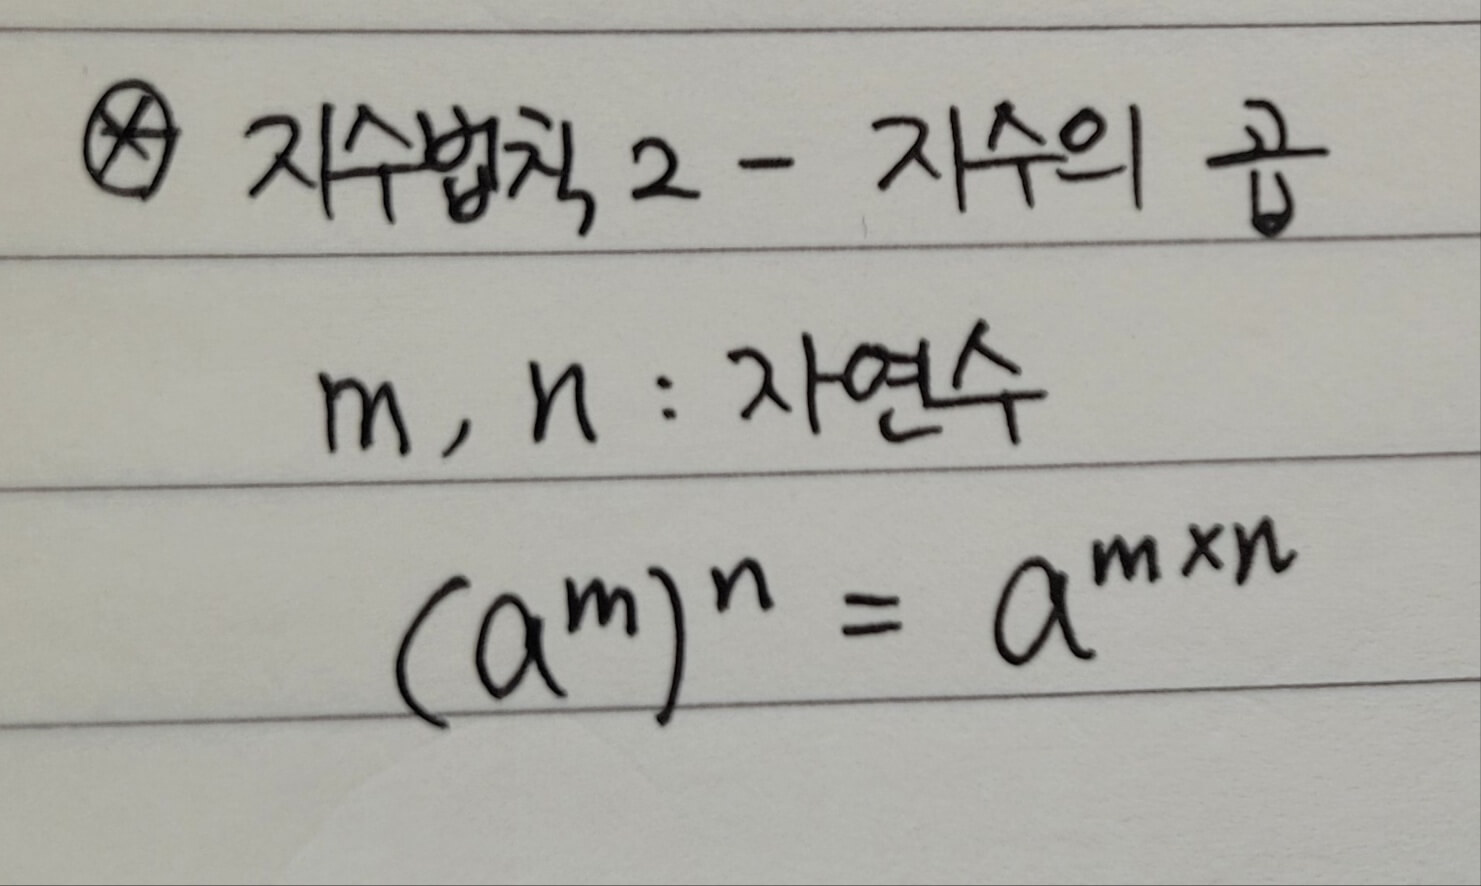 ⊛ 지수법칙 2 - 지수의 곱
m, n : 자연수
(aᵐ)ⁿ = aᵐˣⁿ